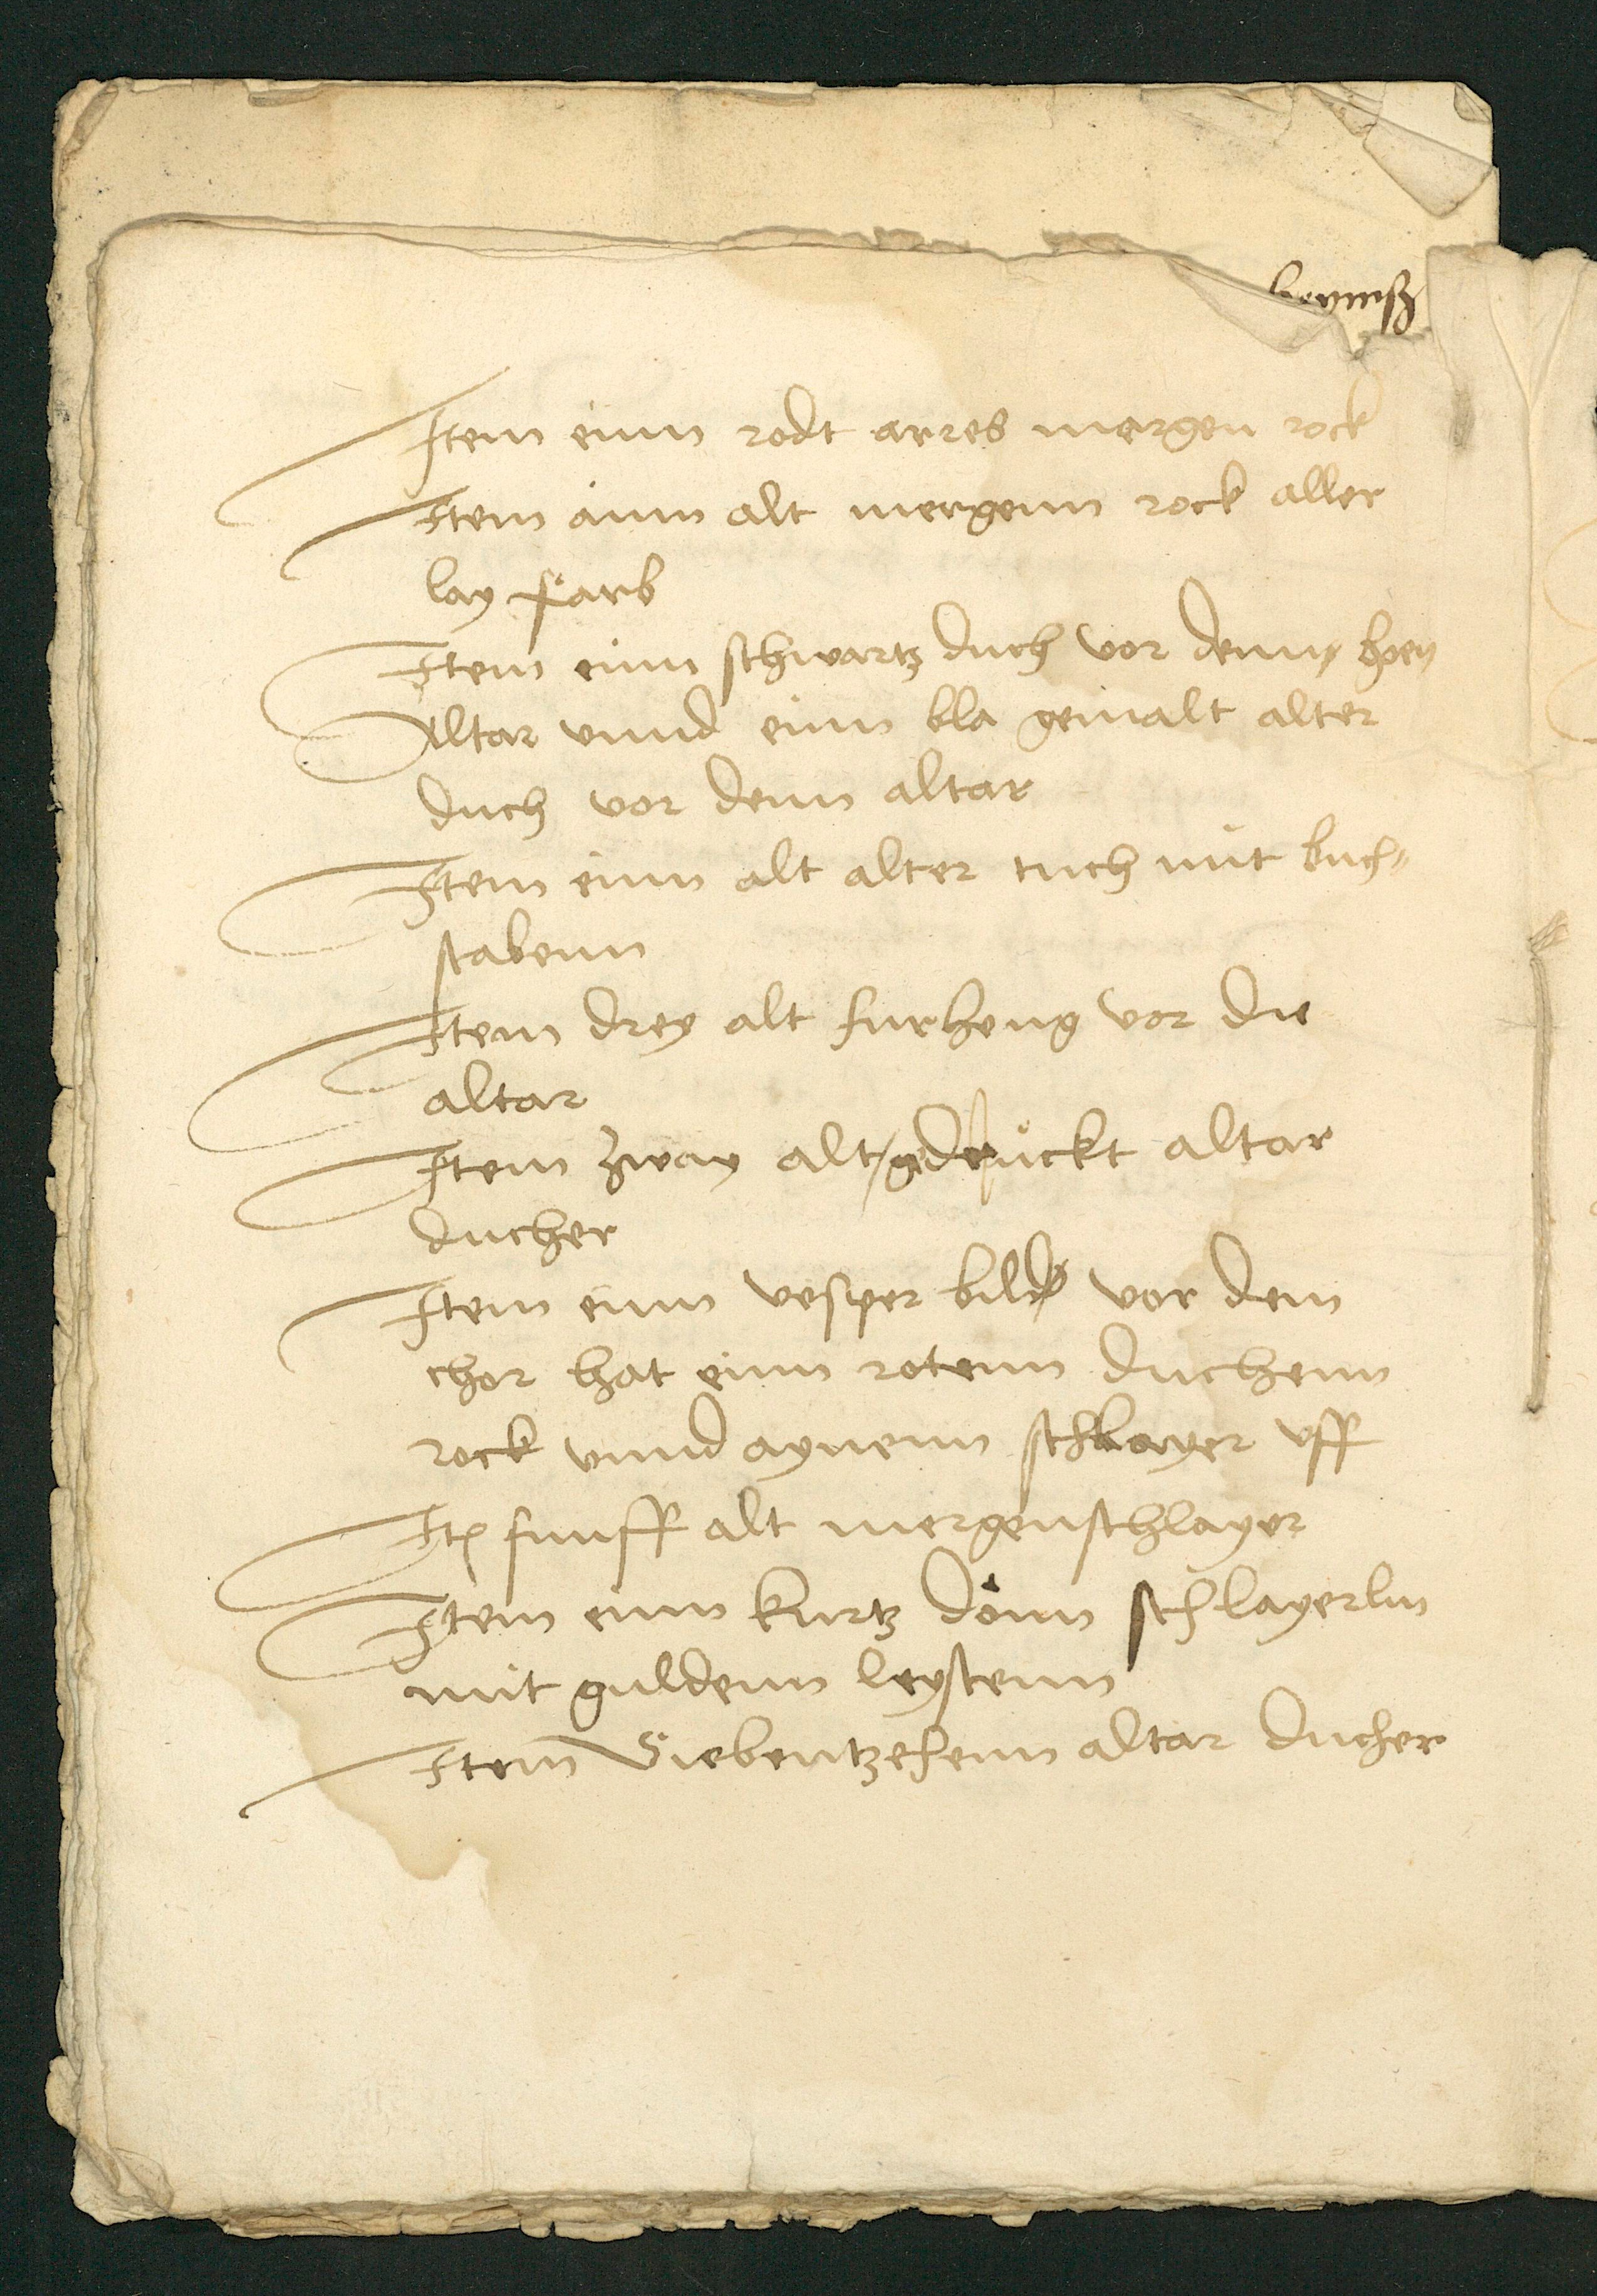 Item einn rodt arres mergen rock
Item ainn alt mergenn rock aller
lay farb
Item einn schwartz duch vor denn hoen
Altar vnnd einn bla gemalt alter
duch vor denn altar
Item einn alt alter tuch mit buch=
stabenn
Item drey alt furheng vor die
altar
Item zway alt gedruckt altar
ducher
Item einn vesper bild vor dem
chor hat einn rotenn duchenn
rock vnnd aynenn schlayer vff
Itē funff alt mergenschlayer
Item einn kurtz dönn schlayerlin
mit guldenn leystenn
Item Siebentzehenn altar ducher